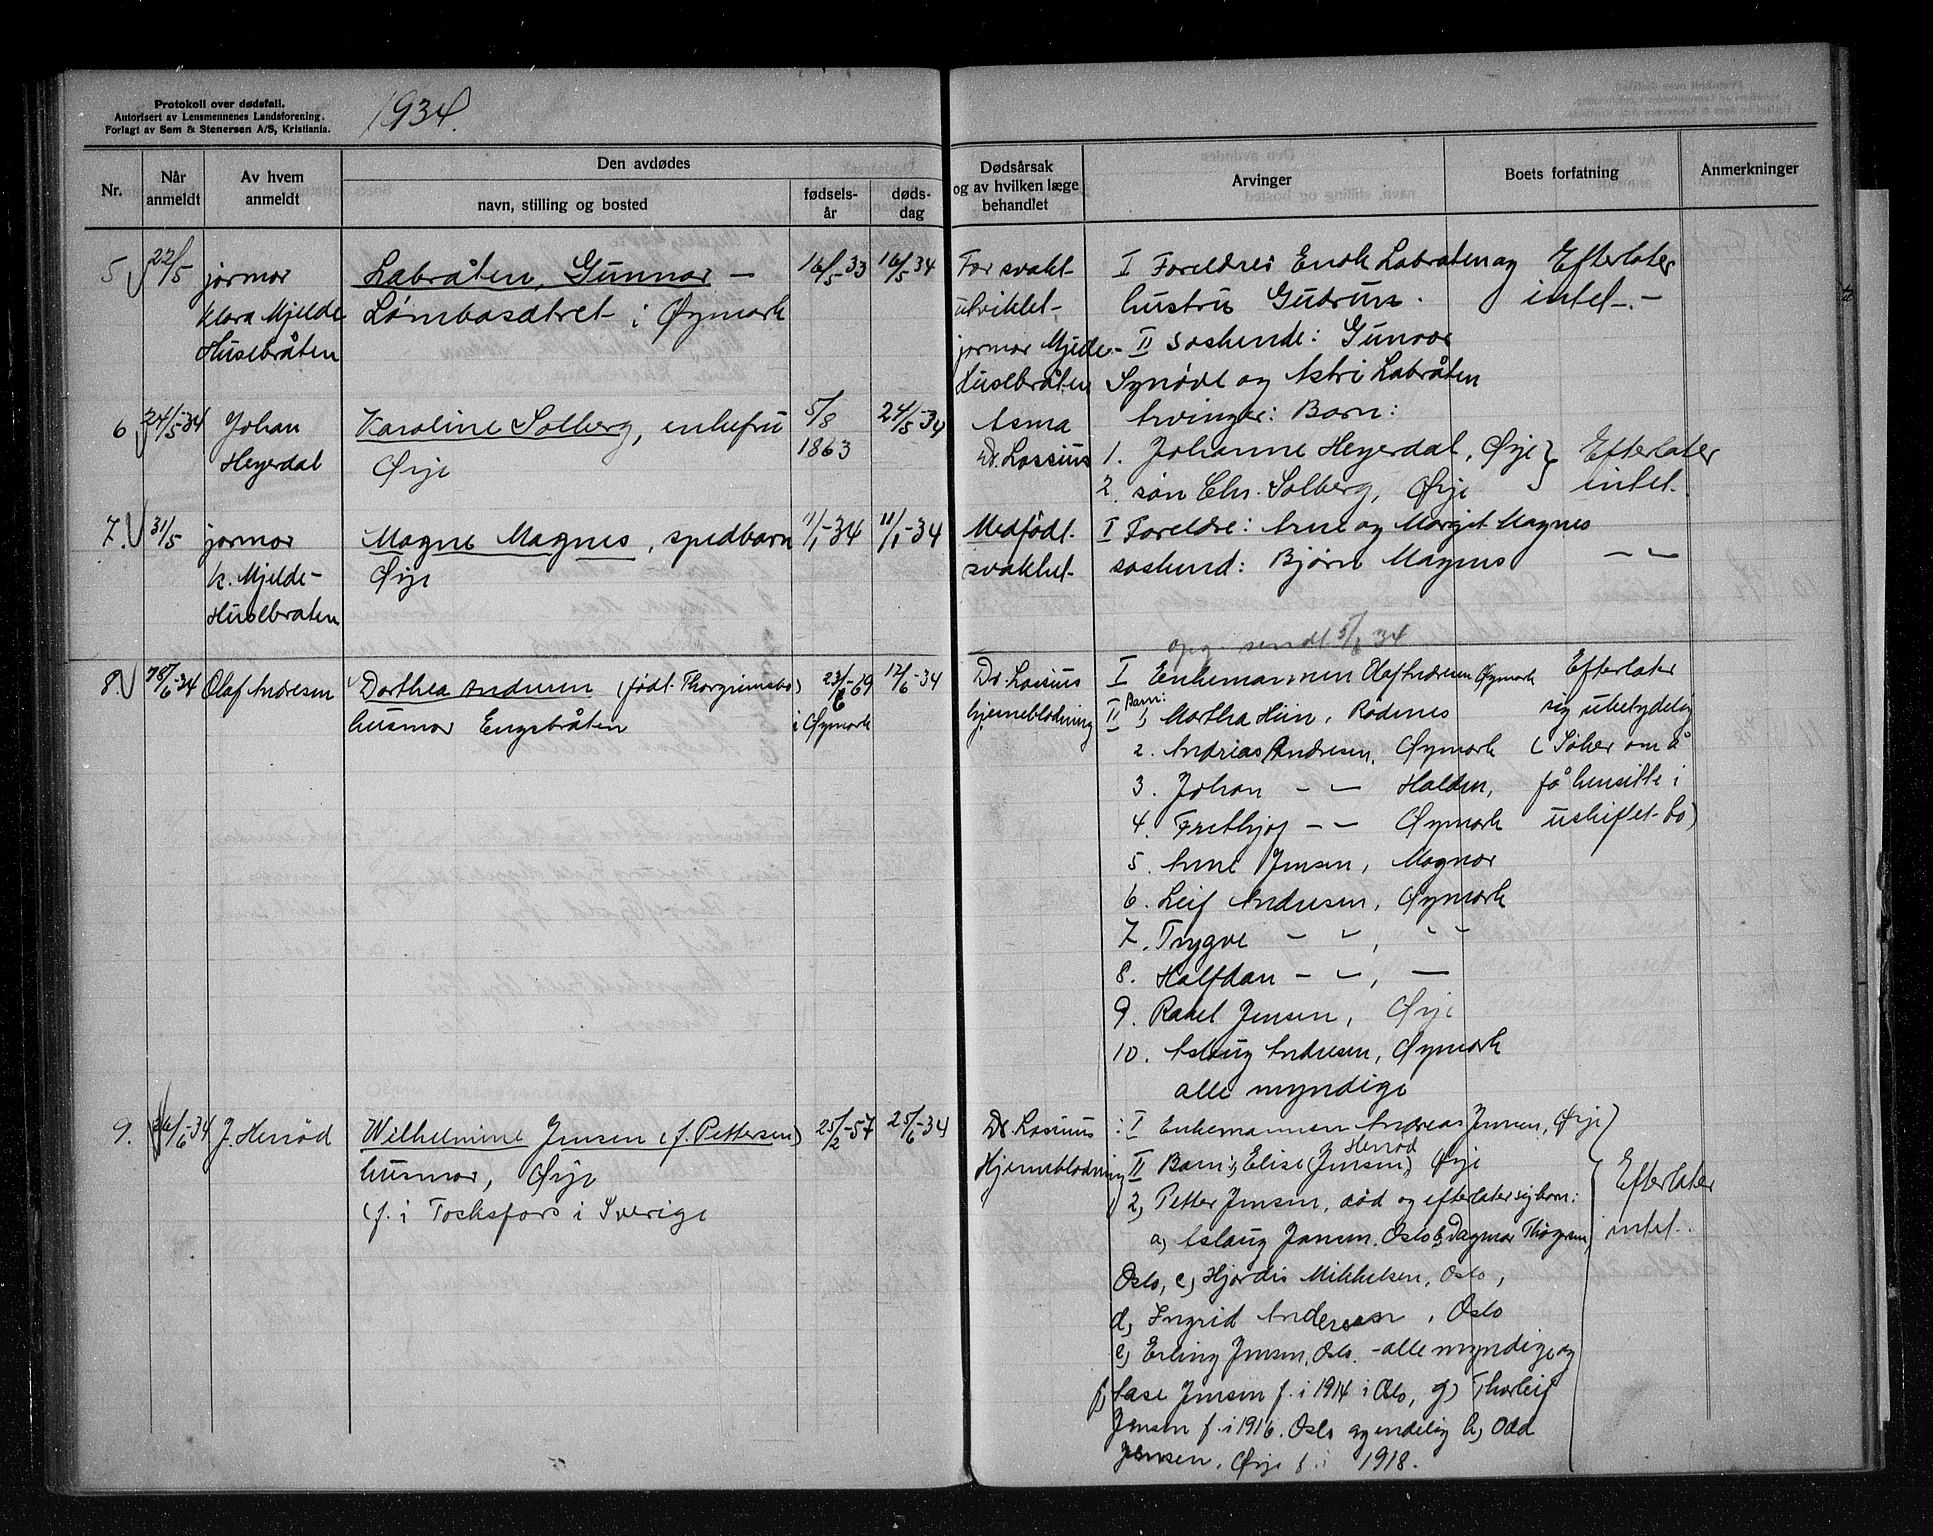 Protokoll over dødsfall.
Autorisert av Lensmennenes Landsforening.
Forlagt av Sem & Stenersen A/S, Kristiania.
1934.
Nr.
Når anmeldt
Av hvem anmeldt
Den avdødes
navn, stilling og bosted
fødsels-
år
døds-
dag
Dødsårsak
og av hvilken læge
behandlet
Arvinger
Boets forfatning
Anmerkninger
5 22/5 jormor
Klara Mjelde
Husebråten
Labråten, Gunnar –
Lømbasætret i Øymark
16/5-33
16/5 34
For svakt
utviklet
jormor Mjelde-
Husebråten
I Foreldre: Enok Labråten og
hustru Gudrun.
II Søskende: Gunvor
Synøve og Astri Labråten
Efterlater
intet.-
6 24/5-34 Johan
Heyerdal
Karoline Solberg, enkefru
Ørje
5/8
1863
24/5-34
Asma
Dr. Lossius
Arvinger: Barn:
1. Johanne Heyerdal, Ørje
2. søn Chr. Solberg, Ørje
Efterlater
intet.
7. 31/5 jormor
K. Mjelde-
Husebråten
Magne Magnes, spedbarn
Ørje
11/1-34
11/1-34
Medfødt
svakhet
I Foreldre: Arne og Margit Magnes
søskend: Bjørn Magnes
– –
opg. sendt 5/6 34
8. 28/6-34 Olaf Andresen
Dorthea Andresen (født Thorgrimsbø)
husmor Engsbråten
23/6-69
i Øymark
12/6-34
Dr. Lossius
hjerneblødning
I Enkemannen Olaf Andresen Øymark
II Barn:
1, Martha Hiin, Rødenes
2. Andreas Andresen, Øymark
3. Johan – – Halden,
4. Frithjof – – Øymark
5. Anne Jensen, Magnor
6. Leif Andresen, Øymark
7. Trygve – –, – –
8. Halfdan – –, –
9. Rakel Jensen, Ørje
10. Aslaug Andresen, Øymark
alle myndige
Efterlater
sig ubetydelig
(Søker om å
få hensitte i
uskiftet bo)
9. 26/6-34 J. Herrød
Wilhelmine Jensen (f. Pettersen)
husmor, Ørje
(f. i Tocksfors i Sverige
25/2-57
25/6-34
Dr. Lossius
Hjerneblødning
: I Enkemannen Andreas Jensen, Ørje
II Barn: 1, Elise (Jensen) Herrød Ørje
2, Petter Jensen, død og efterlater sig barn:
a, Aslaug Jansen. Oslo b, Dagmar Thøgersen,
Oslo, c, Hjørdis Mikkelsen, Oslo,
d, Ingrid Andersen, Oslo
e, Erling Jensen, Oslo. – alle myndige og
f, Aase Jensen f. i 1914 i Oslo, g) Thorleif
Jensen f. i 1916. Oslo og endelig h, Odd
Jensen, Ørje f. i 1918.
Efterlater
intet.